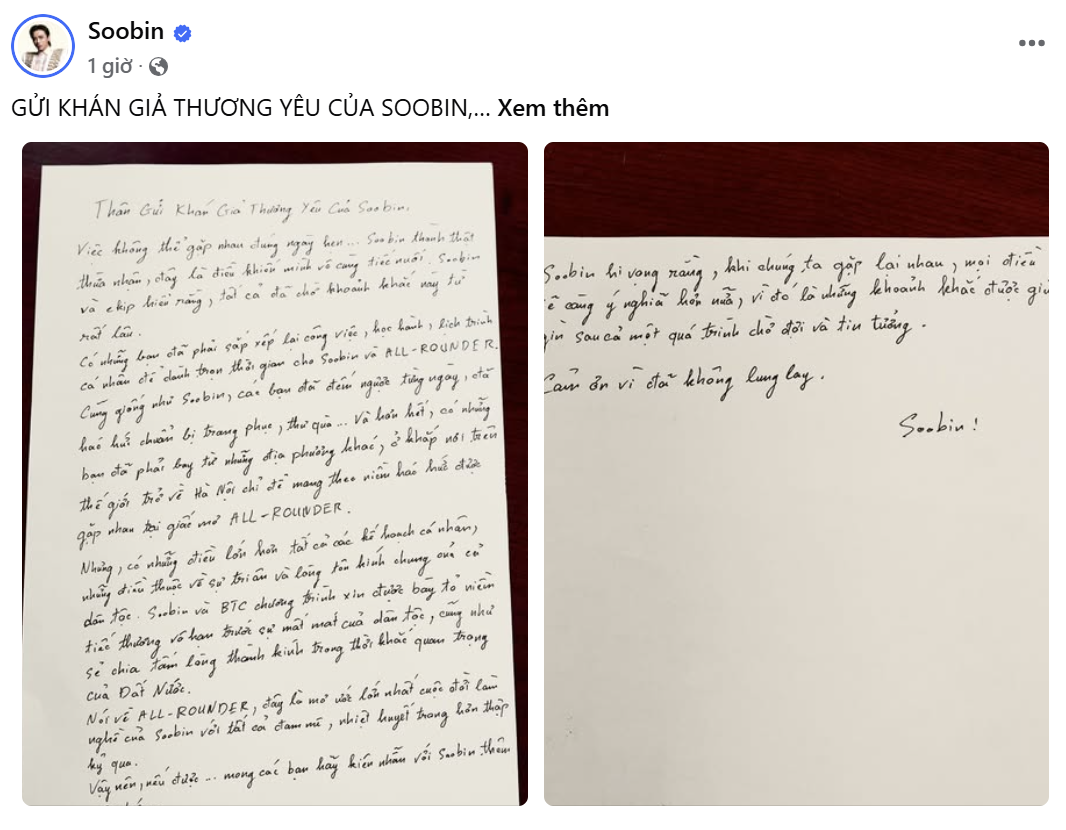 Soobin
1 giờ ·
GỬI KHÁN GIẢ THƯƠNG YÊU CỦA SOOBIN,... Xem thêm
Thân Gửi Khán Giả Thương Yêu Của Soobin.
Việc không thể gặp nhau đúng ngày hẹn... Soobin thành thật
thừa nhận, đây là điều khiến mình vô cùng tiếc nuối. Soobin
và ekip hiểu rằng, tất cả đã chờ khoảnh khắc này từ
rất lâu.
Có những bạn đã phải sắp xếp lại công việc, học hành, lịch trình
cá nhân để dành trọn thời gian cho Soobin và ALL-ROUNDER.
Cũng giống như Soobin, các bạn đã đếm ngược từng ngày, đã
háo hức chuẩn bị trang phục, thư quà... Và hơn hết, có những
bạn đã phải bay từ những địa phương khác, ở khắp nơi trên
thế giới trở về Hà Nội chỉ để mang theo niềm háo hức được
gặp nhau tại giấc mơ ALL-ROUNDER.
Nhưng, có những điều lớn hơn tất cả các kế hoạch cá nhân,
những điều thuộc về sự tri ân và lòng tôn kính chung của cả
dân tộc. Soobin và BTC chương trình xin được bày tỏ niềm
tiếc thương vô hạn trước sự mất mát của dân tộc, cũng như
sẻ chia tấm lòng thành kính trong thời khắc quan trọng
của Đất Nước.
Nói về ALL-ROUNDER, đây là mơ ước lớn nhất cuộc đời làm
nghề của Soobin với tất cả đam mê, nhiệt huyết trong hơn thập
kỷ qua.
Vậy nên, nếu được... mong các bạn hãy kiên nhẫn với Soobin thêm
Soobin hi vọng rằng, khi chúng ta gặp lại nhau, mọi điều
càng ý nghĩa hơn nữa, vì đó là những khoảnh khắc được
sau cả một quá trình chờ đợi và tin tưởng.
Cảm ơn vì đã không lung lay.
Soobin!